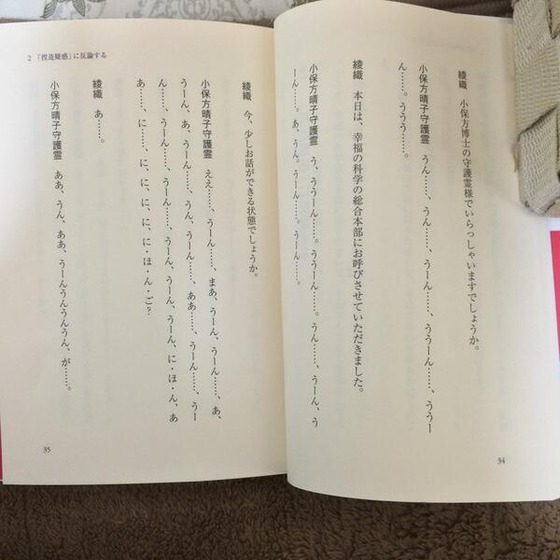 綾織　小保方博士の守護霊様でいらっしゃいますでしょうか。
小保方晴子守護霊　うん……、うん……、うーん……、ううーん……、ううー
ん……。ううう……。
綾織　本日は、幸福の科学の総合本部にお呼びさせていただきました。
小保方晴子守護霊　う、ううーん……。ううーん……。うん……、うーん、う
ーん……。あ、うん。うーん……。うーん……。
34
2　「捏造疑惑」に反論する
綾織　今、少しお話ができる状態でしょうか。
小保方晴子守護霊　ええ……、うーん……、まあ、うーん、うーん……、あ、
うーん、あ、うーん……、うーん……、うーん……、ああ……、うーん……、うー
ん……、うーん……、うーん……、うーん、うーん、うーん、に・ほ・ん、あ
あ……、に……、に、に、に、に　ほ・ん・ご？
綾織　あ……。
小保方晴子守護霊　ああ、うん、ああ、うーんうんうんうん、が……。
35